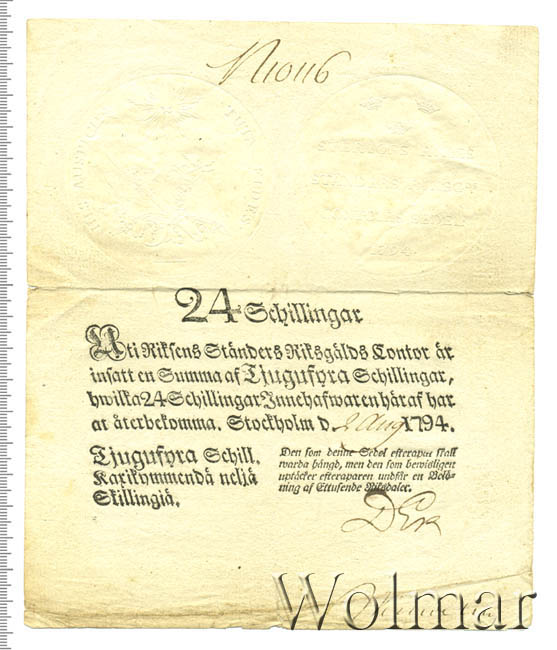 N 10116
24 Schillingar
Uti Riksens Ständers Riksgälds Contor är
insatt en Summa af Tjugufyra Schillingar,
hwilka 24 Schillingar Innehafwaren häraf har
at återbekomma. Stockholm d. 2 Aug 1794.
Tjugufyra Schill.
Kaxikymmendä neljä
Skillingiä.
Den som denne Sedel efterapar skall
warda hängd, men den som bewisligen
uptäcker efteraparen undfår en Belö-
ning af Ettusende Riksdaler.
Wolmar